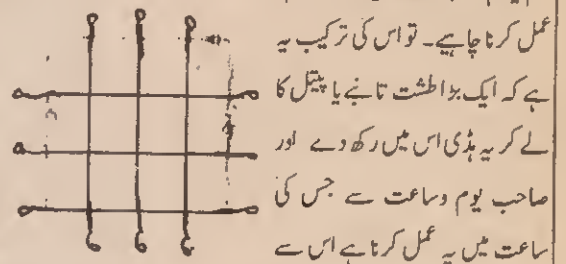 عمل کرنا چاہیے۔ تو اس کی ترکیب یہ
ہے کہ ایک بڑا طشت تانبے یا پیتل کا
لے کر یہ ہڈی اس میں رکھ دے اور
صاحب یوم وساعت سے جس کی
ساعت میں یہ عمل کرنا ہے اس سے